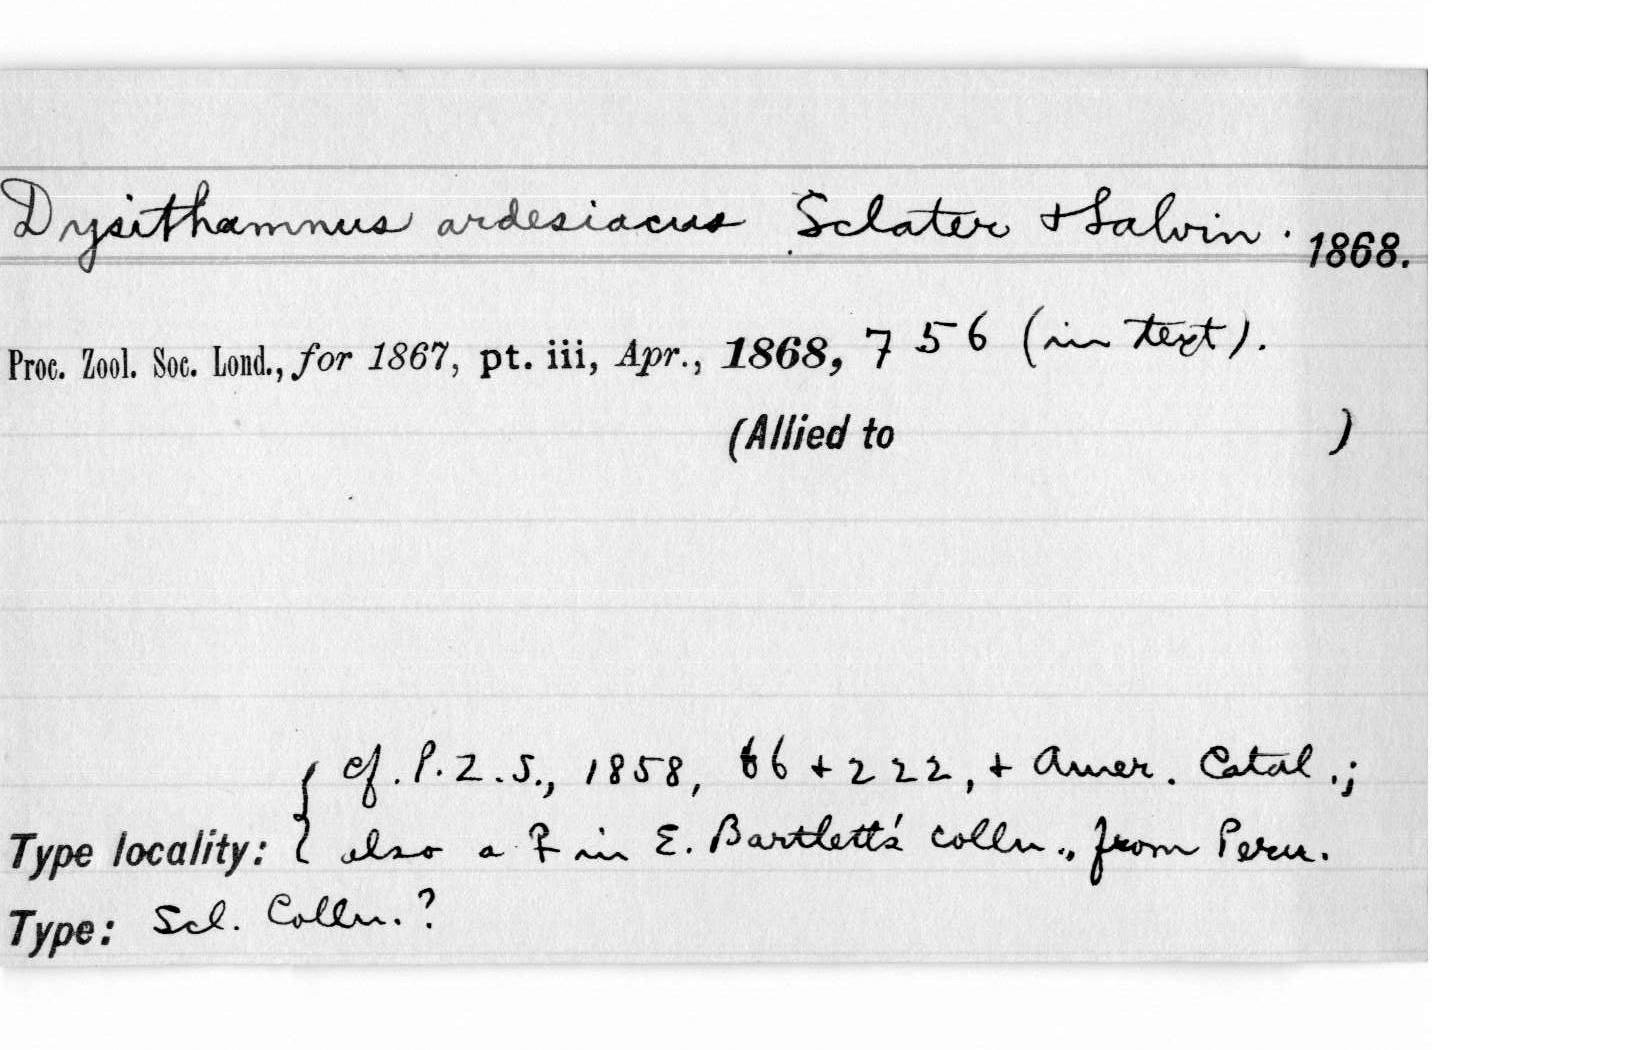 Dysithamnus ardesiacus Sclater + Salvin. 1868.
Proc. Zool. Soc. Lond., for 1867, pt. iii, Apr., 1868, 756 (in text).
(Allied to )
{ cf. P.Z.S., 1858, 66 + 222, + Amer. Catal.;
Type locality: { also a ♀ in E. Bartlett's colln., from Peru.
Type: Scl. Colln.?